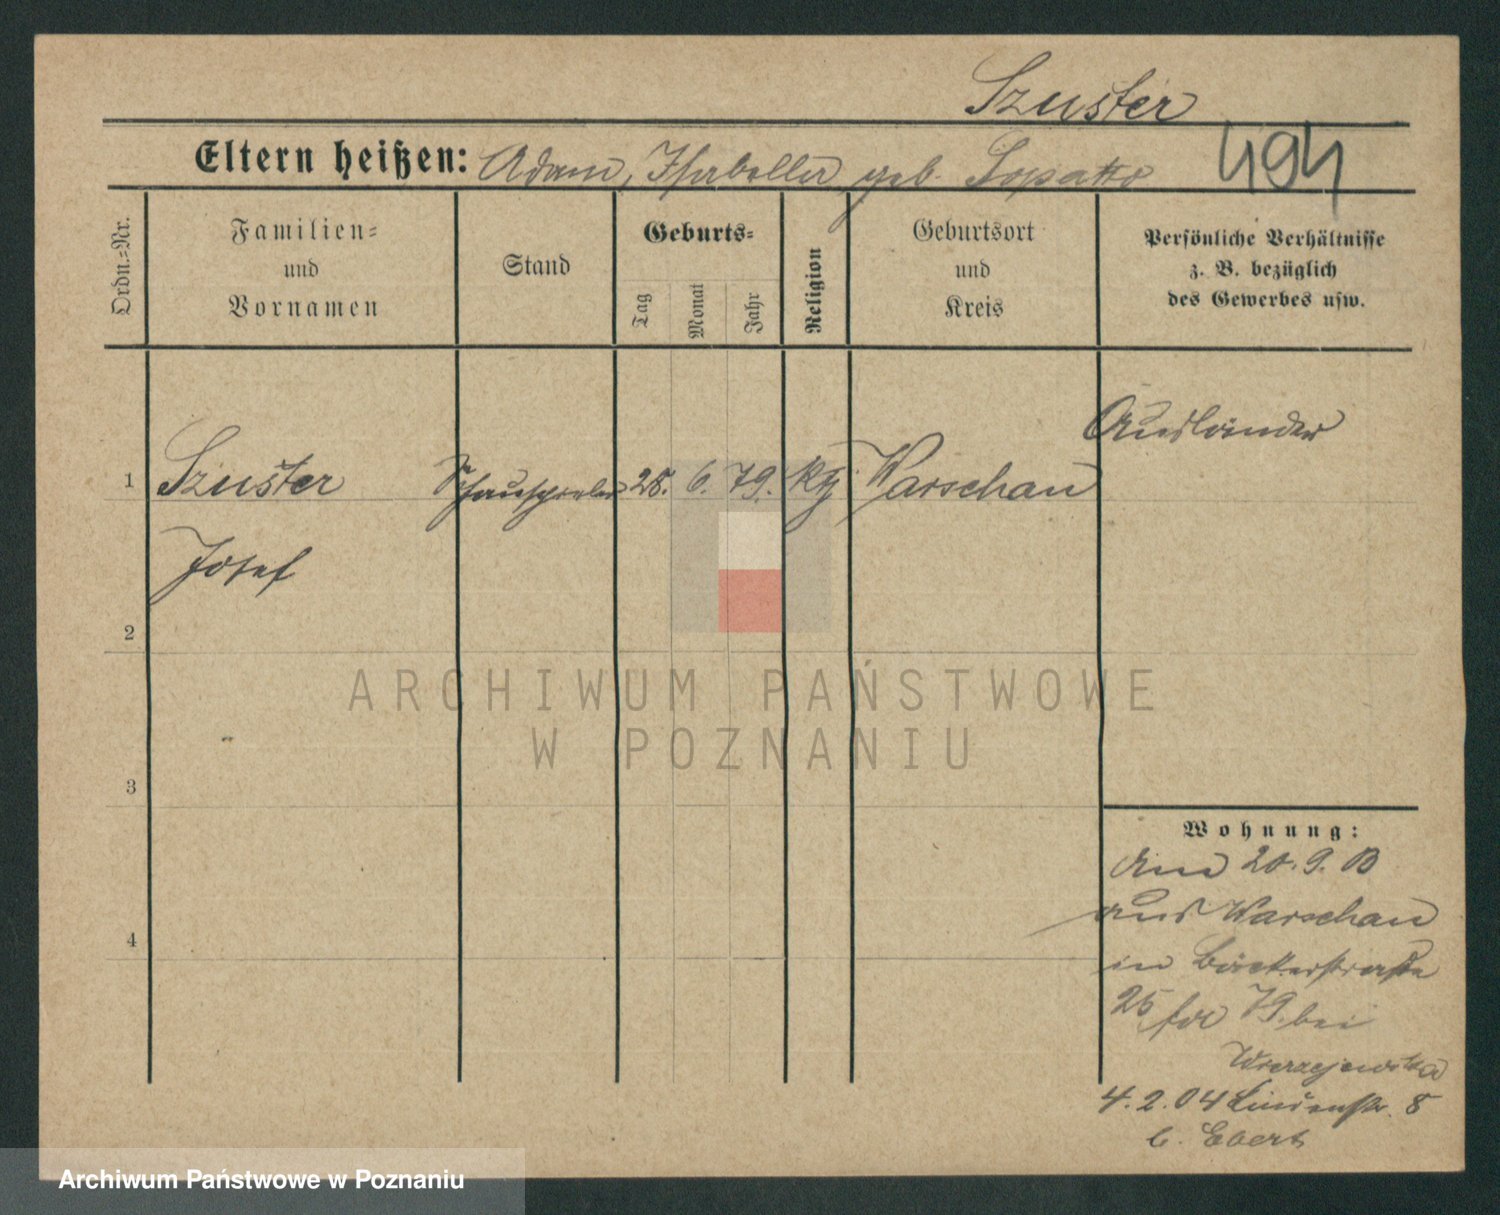 Szuster
Eltern heißen: Adam, Isabella geb. Lopatto
494
Ordn.-Nr.
Familien-
und
Vornamen
Stand
Geburts-
Tag
Monat
Jahr
Religion
Geburtsort
und
Kreis
Persönliche Verhältnisse
z. B. bezüglich
des Gewerbes usw.
Ausländer
1 Szuster Schauspieler 28. 6. 79. Warschau
Josef
2
ARCHIWUM PAŃSTWOWE
W POZNANIU
3
Wohnung:
20. 9.
aus Warschau
4
in Bäckerstraße
25 79. bei
Wierzejewska
4. 2. 04 Lindenstr. 8
b. Ebert
Archiwum Państwowe w Poznaniu